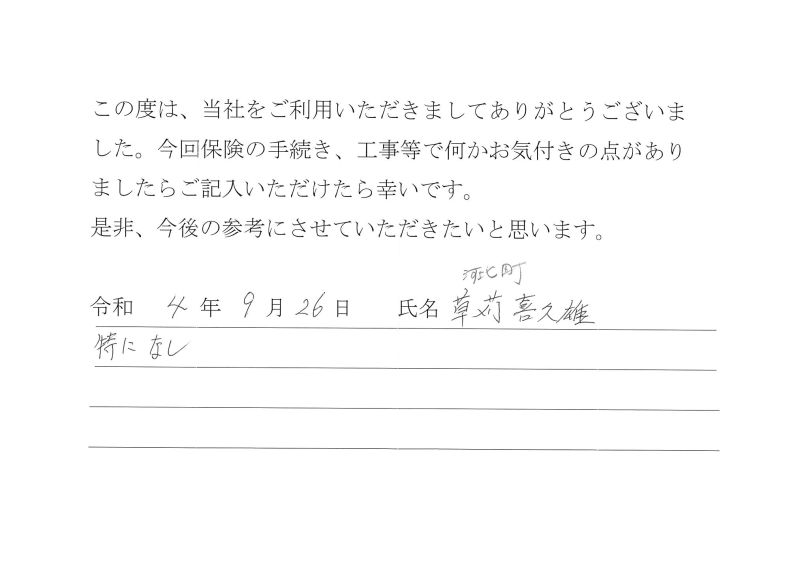 この度は、当社をご利用いただきましてありがとうございま
した。今回保険の手続き、工事等で何かお気付きの点があり
ましたらご記入いただけたら幸いです。
是非、今後の参考にさせていただきたいと思います。
河北町
令和 4 年 9 月 26 日 氏名 草苅 喜久雄
特に なし